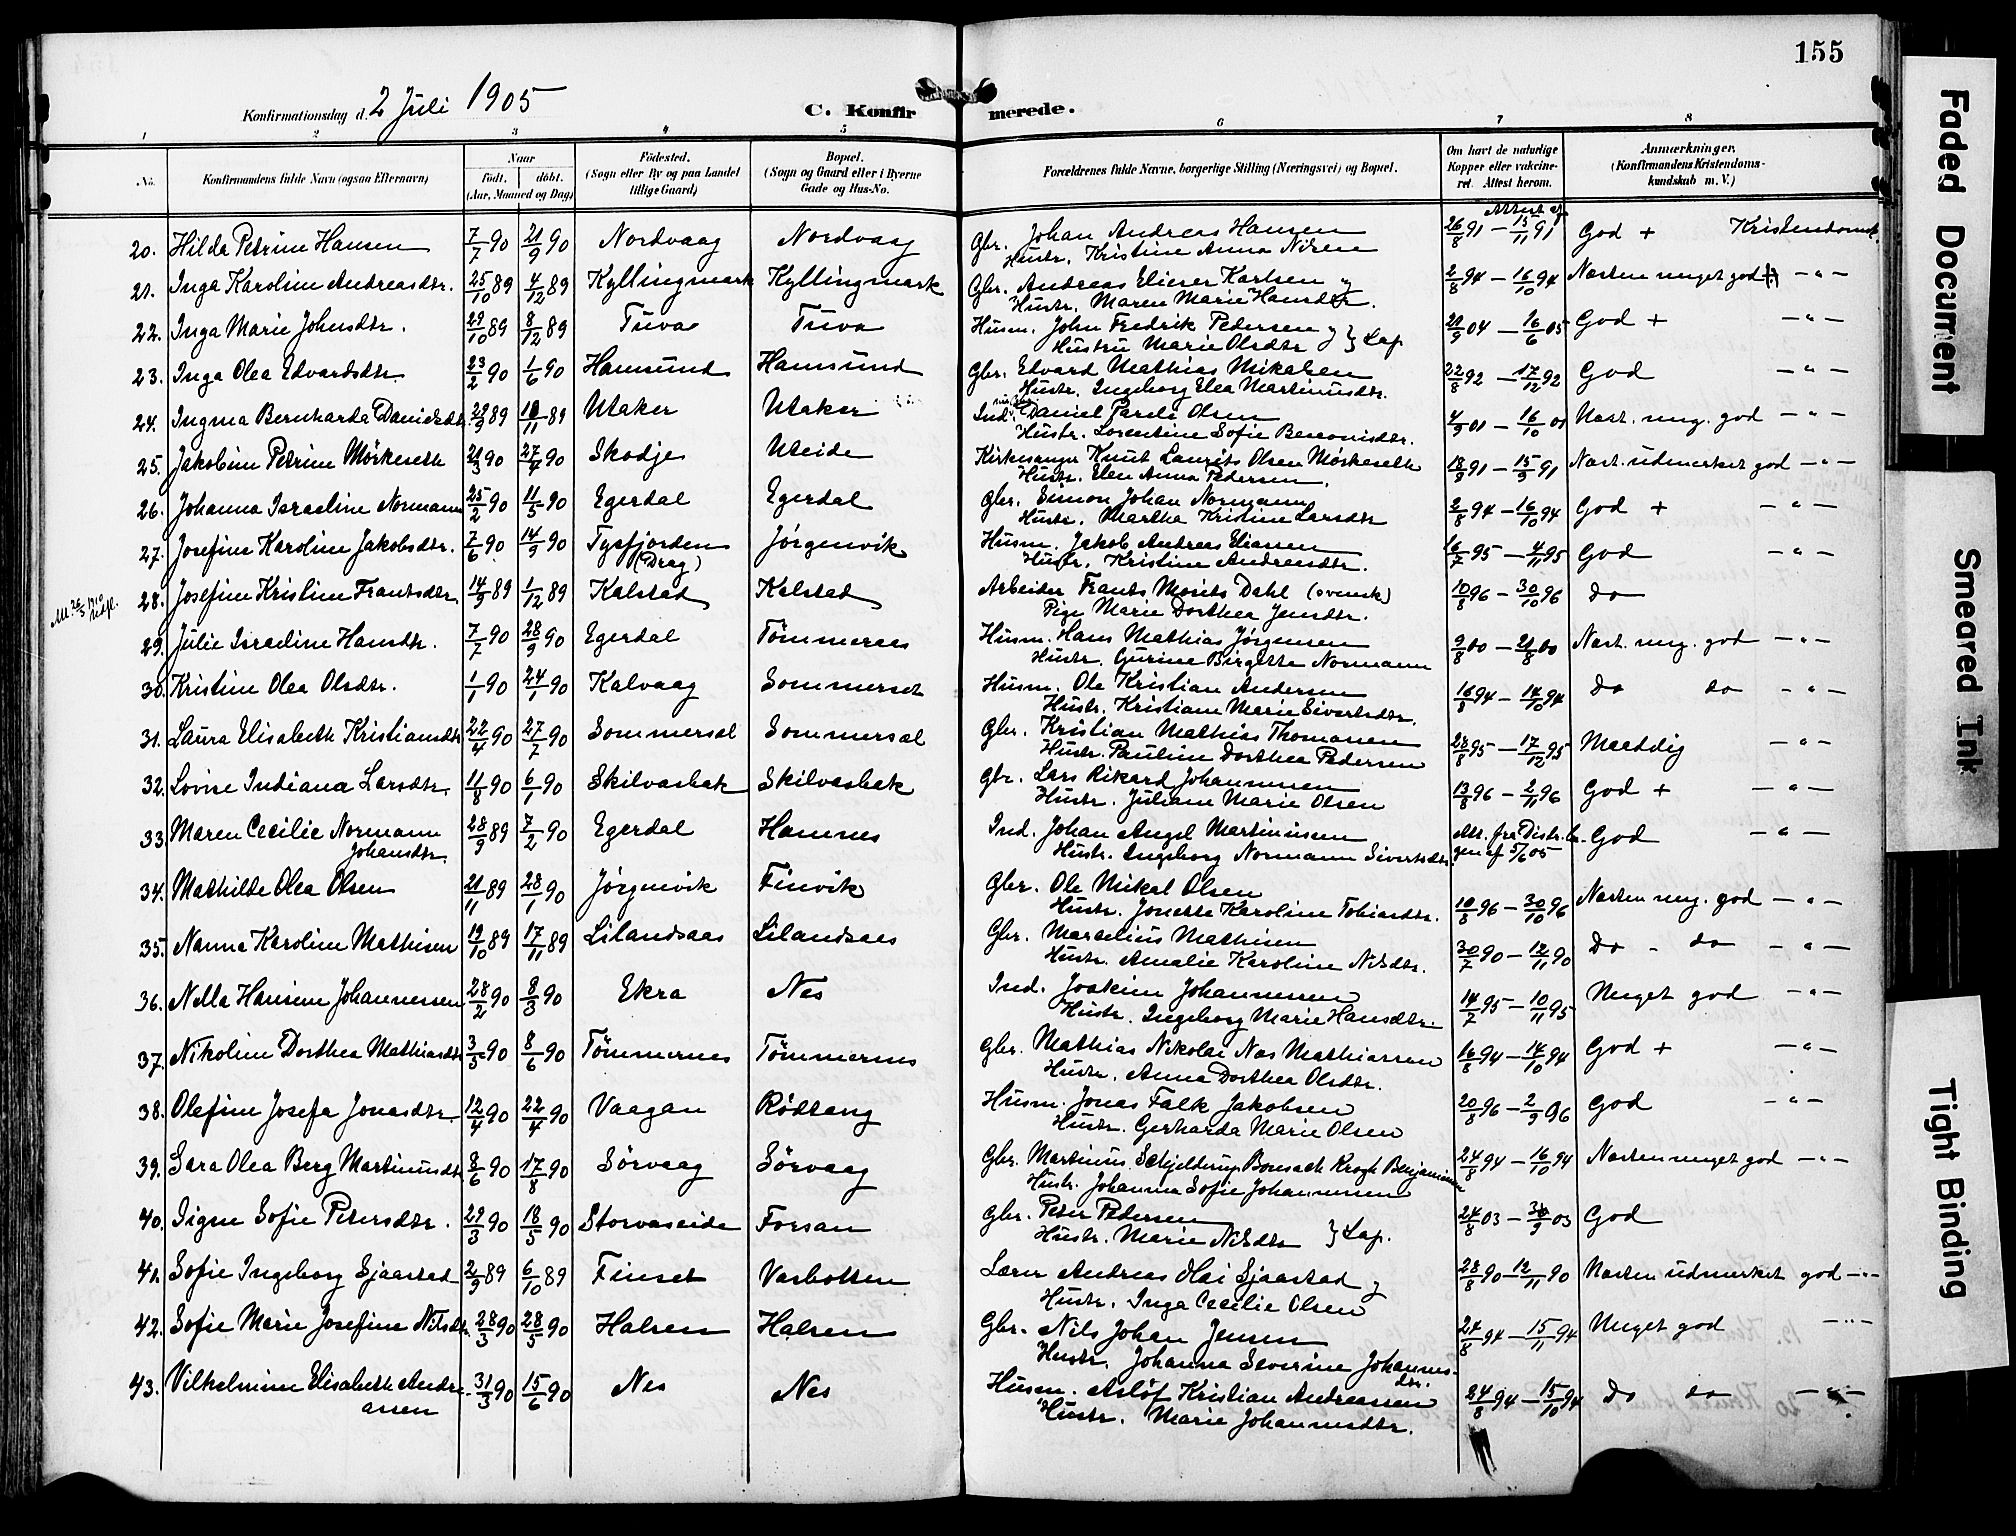 155
Konfirmationsdag d. 2 Juli 1905
C. Konfirmerede.
1 2 3 4 5 6 7 8
No. Konfirmandens fulde Navn (ogsaa Efternavn) Naar Födt. döbt. (Aar, Maaned og Dag) Födested. (Sogn eller By og paa Landet tillige Gaard) Bopæl. (Sogn og Gaard eller i Byerne Gade og Hus-No.) Forældrenes fulde Navne, borgerlige Stilling (Næringsvei) og Bopæl. Om havt de naturlige Kopper eller vakcineret. Attest herom. Anmærkninger. (Konfirmandens Kristendomskundskab m. V.)
20. Hilda Petrine Hansen 7/7 90 21/9 90 Nordvaag Nordvaag Gbr. Johan Andreas Hansen 26/8 91 – 15/11 91 God + Kristendomsk.
Hustr. Kristine Anna Nilsen
21. Inga Karoline Andreasdtr. 25/10 89 4/12 89 Kyllingmark Kyllingmark Gbr. Andreas Elieser Karlsen og 2/8 94 – 16/10 94 Næsten meget god (+) – " –
Hustr. Maren Marie Hansdtr.
22. Inga Marie Johnsdtr. 29/10 89 8/12 89 Tuva Tuva Husm. John Fredrik Pedersen og } Lap 20/9 04 – 16/6 05 God + – " –
Hustru Marie Olsdtr
23. Inga Olea Edvardsdtr. 23/2 90 1/6 90 Hamsund Hamsund Gbr. Edvard Mathias Mikalsen 22/8 92 – 17/12 92 God – " –
Hustr. Ingeborg Elea Martinusdtr.
24. Ingma Bernharda Danielsdtr. 29/9 89 10/11 89 Utaker Utaker Ind. Daniel Pareli Olsen 4/9 01 – 16/10 01 Næst. meg. god – " –
Hustr. Lorentine Sofie Benonisdtr.
25. Jakobine Petrine Mörkeseth 21/3 90 27/4 90 Skodje Uteide Kirkesanger Knut Laurits Olsen Mörkeseth 18/8 91 – 15/9 91 Næst. udmerket god – " –
Hustr. Elen Anna Pedersen.
26. Johanna Israeline Normann 25/2 90 11/5 90 Egerdal Egerdal Gbr. Simon Johan Normann 2/8 94 – 16/10 94 God + – " –
Hustr. Martha Kristine Larsdtr
27. Josefine Karoline Jakobsdtr. 7/6 90 14/9 90 Tysfjorden (Drag) Jörgenvik Husm. Jakob Andreas Eliassen 16/7 95 – 4/11 95 God – " –
Hustr. Kristine Andreasdtr.
28. Josefine Kristine Frantsdtr. 14/9 89 1/12 89 Kalstad Kalstad Arbeider Frants Morits Dahl (svensk) 10/8 96 – 30/10 96 do
Pige Marie Dorthea Jensdtr.
29. Julie Israeline Hansdtr. 7/7 90 28/9 90 Egerdal Tömmeraas Husm. Hans Mathias Jörgensen 9/8 00 – 21/8 00 Næst. meg. god – " –
Hustr. Gurine Birgitte Normann
30. Kristine Olea Olsdtr. 1/1 90 24/1 90 Kalvaag Sommerset Husm. Ole Kristian Andersen 16/8 94 – 14/10 94 do do – " –
Hustr. Kristiane Marie Sivertsdtr.
31. Laura Elisabeth Kristiansdtr 22/4 90 27/7 90 Sommersel Sommersel Gbr. Kristian Mathias Thomassen 28/8 95 – 17/12 95 Maadelig – " –
Hustr. Pauline Dorthea Pedersen
32. Lovise Indiana Larsdtr. 11/8 90 6/1 90 Skilvasbak Skilvasbak Gbr. Lars Rikard Johannessen 13/8 96 – 2/11 96 God + – " –
Hustr. Juliane Marie Olsen
33. Maren Cecilie Normann Johansdtr. 28/9 89 7/2 90 Egerdal Hamnes Ind. Johan Angel Martinussen Att. fra Distr.lægen af 5/6 05 God – " –
Hustr. Ingeborg Normann Sivertsdtr.
34. Mathilde Olea Olsen 21/11 89 28/1 90 Jörgenvik Finvik Gbr. Ole Mikal Olsen 10/8 96 – 30/10 96 Næsten meg. god – " –
Hustr. Jonette Karoline Tobiasdtr.
35. Nanna Karoline Mathisen 19/10 89 17/11 89 Lilandsaas Lilandsaas Gbr. Marselius Mathisen 30/7 90 – 12/11 90 Do - do – " –
Hustr. Amalie Karoline Nilsdtr.
36. Nella Hansine Johannessen 28/2 90 8/3 90 Ekra Nes Ind. Joakim Johannessen 14/7 95 – 10/11 95 Meget god – " –
Hustr. Ingeborg Marie Hansdtr.
37. Nikoline Dorthea Mathiasdtr 3/5 90 8/6 90 Tömmernes Tömmernes Gbr. Mathias Nikolai Nas Mathiassen 16/8 94 – 14/10 94 God + – " –
Hustr. Anna Dorthea Olsdtr.
38. Olefine Josefa Jonasdtr. 12/4 90 22/4 90 Vaagan Rödtang Husm. Jonas Falk Jakobsen 20/8 96 – 2/9 96 God – " –
Hustr. Gerharda Marie Olsen
39. Sara Olea Berg Martinusdtr 8/6 90 17/8 90 Sörvaag Sörvaag Gbr. Martinus Schjelderup Bonsach Krogh Benjaminsen 24/8 94 – 16/10 94 Næsten meget god – " –
Hustr. Johanna Sofie Johannessen
40. Signe Sofie Petersdtr. 29/3 90 18/5 90 Storvaseide Forsan Gbr. Peter Pedersen } Lap. 24/8 03 – 30/9 03 God
Hustr. Marie Nilsdtr
41. Sofie Ingeborg Sjaastad 2/9 89 6/10 89 Finset Vasbotten Lærer Andreas Moi Sjaastad og 28/8 90 – 12/11 90 Næsten udmerket god – " –
Hustr. Inga Cecilie Olsen
42. Sofie Marie Josefine Nilsdtr. 28/3 90 28/5 90 Halsen Halsen Gbr. Nils Johan Jensen 24/8 94 – 15/11 94 Meget god – " –
Hustr. Johanna Severine Johannesdtr.
43. Vilhelmine Elisabeth Andreassen 31/3 90 15/6 90 Nes Nes Husm. Aslöf Kristian Andreassen 24/8 94 – 15/10 94 Do do – " –
Hustr. Marie Johannesdtr.
Faded Document
Smeared Ink
Tight Binding